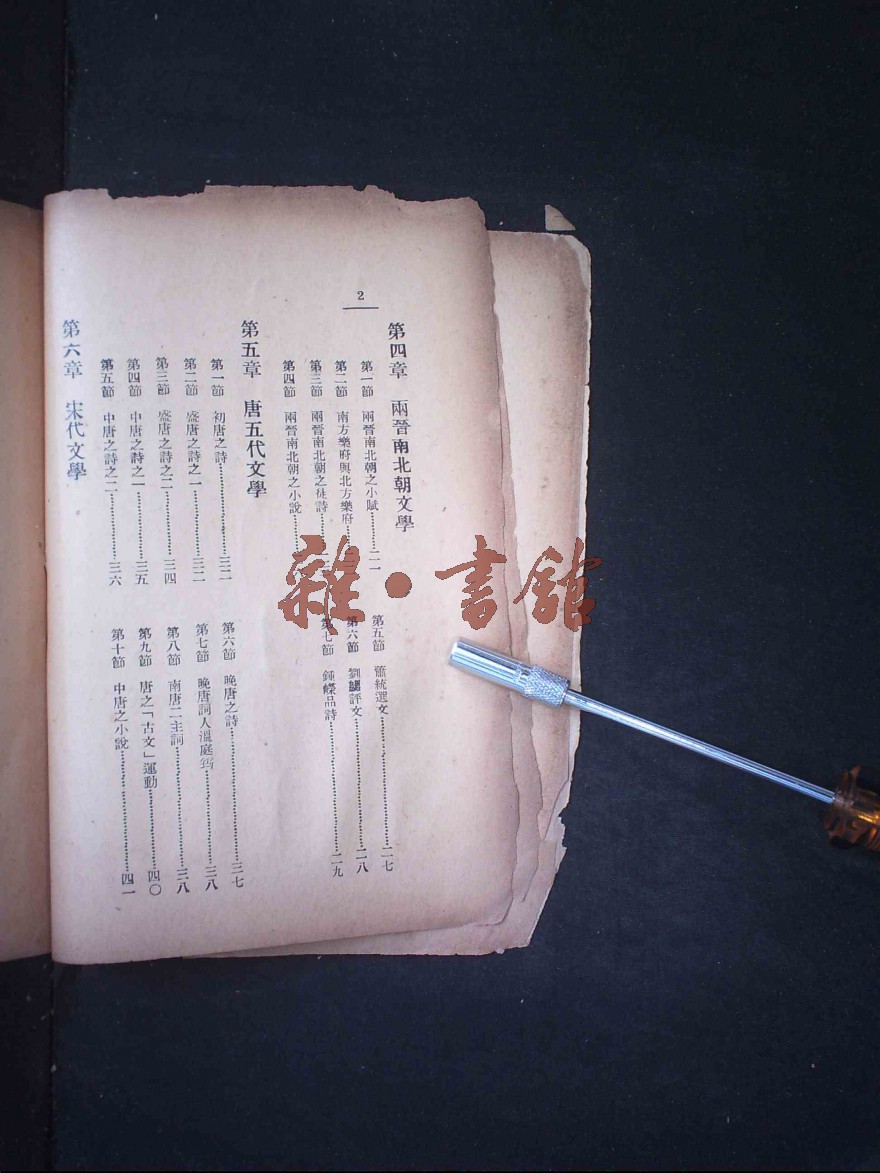 2
第四章　兩晉南北朝文學
第一節　兩晉南北朝之小賦………………二一
第二節　南方樂府與北方樂府
第三節　兩晉南北朝之徒詩
第四節　兩晉南北朝之小說
第五節　蕭統選文………………二七
第六節　劉勰評文………………二八
第七節　鍾嶸品詩………………二九
第五章　唐五代文學
第一節　初唐之詩………………三二
第二節　盛唐之詩之一………………三二
第三節　盛唐之詩之二………………三四
第四節　中唐之詩之一………………三五
第五節　中唐之詩之二………………三六
第六節　晚唐之詩………………三七
第七節　晚唐詞人溫庭筠………………三八
第八節　南唐二主詞………………三八
第九節　唐之「古文」運動………………四〇
第十節　中唐之小說………………四一
第六章　宋代文學
雜·書館